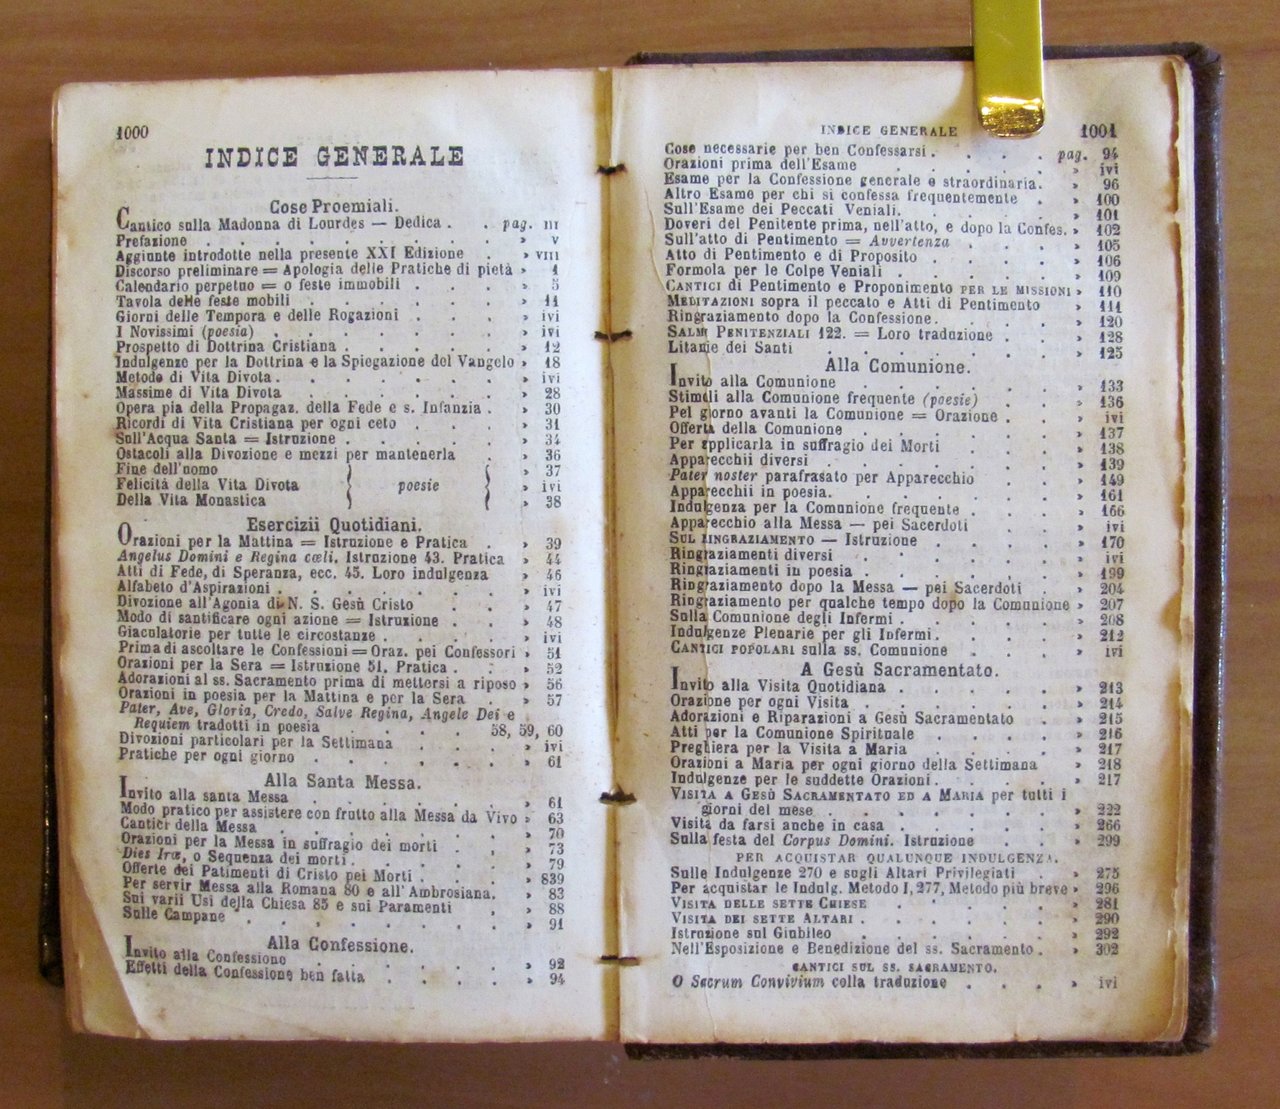 1000
INDICE GENERALE
Cose Proemiali.
Cantico sulla Madonna di Lourdes — Dedica . . pag. III
Prefazione . . . . . . . . . » V
Aggiunte introdotte nella presente XXI Edizione . » VIII
Discorso preliminare = Apologia delle Pratiche di pietà » 1
Calendario perpetuo = o feste immobili . . . . » 5
Tavola delle feste mobili . . . . . . . » 11
Giorni delle Tempora e delle Rogazioni . . . . » ivi
I Novissimi (poesia) . . . . . . . » ivi
Prospetto di Dottrina Cristiana . . . . . . » 12
Indulgenze per la Dottrina e la Spiegazione del Vangelo » 18
Metodo di Vita Divota . . . . . . . . » ivi
Massime di Vita Divota . . . . . . . » 28
Opera pia della Propagaz. della Fede e s. Infanzia . » 30
Ricordi di Vita Cristiana per ogni ceto . . . . » 31
Sull'Acqua Santa = Istruzione . . . . . . » 34
Ostacoli alla Divozione e mezzi per mantenerla . » 36
Fine dell'uomo » 37
Felicità della Vita Divota } poesie { » ivi
Della Vita Monastica » 38
Esercizii Quotidiani.
Orazioni per la Mattina = Istruzione e Pratica . » 39
Angelus Domini e Regina cœli, Istruzione 43. Pratica » 44
Atti di Fede, di Speranza, ecc. 45. Loro indulgenza » 46
Alfabeto d'Aspirazioni . . . . . . . . » ivi
Divozione all'Agonia di N. S. Gesù Cristo . . » 47
Modo di santificare ogni azione = Istruzione . . » 48
Giaculatorie per tutte le circostanze . . . . » ivi
Prima di ascoltare le Confessioni = Oraz. pei Confessori » 51
Orazioni per la Sera = Istruzione 51. Pratica . . » 52
Adorazioni al ss. Sacramento prima di mettersi a riposo » 56
Orazioni in poesia per la Mattina e per la Sera . » 57
Pater, Ave, Gloria, Credo, Salve Regina, Angele Dei e
Requiem tradotti in poesia . . . . 58, 59, 60
Divozioni particolari per la Settimana . . . . » ivi
Pratiche per ogni giorno . . . . . . . » 61
Alla Santa Messa.
Invito alla santa Messa . . . . . . . » 61
Modo pratico per assistere con frutto alla Messa da Vivo » 63
Cantici della Messa . . . . . . . . » 70
Orazioni per la Messa in suffragio dei morti . . » 73
Dies Iræ, o Sequenza dei morti . . . . . » 79
Offerte dei Patimenti di Cristo pei Morti . . . » 839
Per servir Messa alla Romana 80 e all'Ambrosiana. » 83
Sui varii Usi della Chiesa 85 e sui Paramenti . » 88
Sulle Campane . . . . . . . . . » 91
Alla Confessione.
Invito alla Confessione . . . . . . . » 92
Effetti della Confessione ben fatta . . . . . » 94
INDICE GENERALE 1001
Cose necessarie per ben Confessarsi . . . . pag. 94
Orazioni prima dell'Esame . . . . . . » ivi
Esame per la Confessione generale e straordinaria. » 96
Altro Esame per chi si confessa frequentemente . » 100
Sull'Esame dei Peccati Veniali. . . . . . » 101
Doveri del Penitente prima, nell'atto, e dopo la Confes. » 102
Sull'atto di Pentimento = Avvertenza . . . . » 105
Atto di Pentimento e di Proposito . . . . . » 106
Formola per le Colpe Veniali . . . . . . » 109
CANTICI di Pentimento e Proponimento PER LE MISSIONI » 110
MEDITAZIONI sopra il peccato e Atti di Pentimento » 111
Ringraziamento dopo la Confessione . . . . . » 120
SALMI PENITENZIALI 122. = Loro traduzione . . » 128
Litanie dei Santi . . . . . . . . » 125
Alla Comunione.
Invito alla Comunione . . . . . . . » 133
Stimoli alla Comunione frequente (poesie) . . . » 136
Pel giorno avanti la Comunione = Orazione . . . » ivi
Offerta della Comunione . . . . . . . » 137
Per applicarla in suffragio dei Morti . . . . » 138
Apparecchii diversi . . . . . . . . » 139
Pater noster parafrasato per Apparecchio . . . » 149
Apparecchii in poesia. . . . . . . . » 161
Indulgenza per la Comunione frequente . . . . » 166
Apparecchio alla Messa — pei Sacerdoti . . . » ivi
SUL RINGRAZIAMENTO — Istruzione . . . . . » 170
Ringraziamenti diversi . . . . . . . » ivi
Ringraziamenti in poesia . . . . . . . » 199
Ringraziamento dopo la Messa — pei Sacerdoti . . » 204
Ringraziamento per qualche tempo dopo la Comunione » 207
Sulla Comunione degli Infermi . . . . . . » 208
Indulgenze Plenarie per gli Infermi. . . . . » 212
CANTICI POPOLARI sulla ss. Comunione . . . . » ivi
A Gesù Sacramentato.
Invito alla Visita Quotidiana . . . . . . » 213
Orazione per ogni Visita . . . . . . . » 214
Adorazioni e Riparazioni a Gesù Sacramentato . . » 215
Atti per la Comunione Spirituale . . . . . » 216
Preghiera per la Visita a Maria . . . . . » 217
Orazioni a Maria per ogni giorno della Settimana . » 218
Indulgenze per le suddette Orazioni . . . . . » 217
VISITA A GESÙ SACRAMENTATO ED A MARIA per tutti i
giorni del mese . . . . . . . . » 222
Visita da farsi anche in casa . . . . . . » 266
Sulla festa del Corpus Domini. Istruzione . . . » 299
PER ACQUISTAR QUALUNQUE INDULGENZA.
Sulle Indulgenze 270 e sugli Altari Privilegiati . » 275
Per acquistar le Indulg. Metodo I, 277, Metodo più breve » 296
VISITA DELLE SETTE CHIESE . . . . . . » 281
VISITA DEI SETTE ALTARI . . . . . . . » 290
Istruzione sul Giubileo . . . . . . . » 292
Nell'Esposizione e Benedizione del ss. Sacramento . » 302
CANTICI SUL SS. SACRAMENTO.
O Sacrum Convivium colla traduzione . . . . » ivi